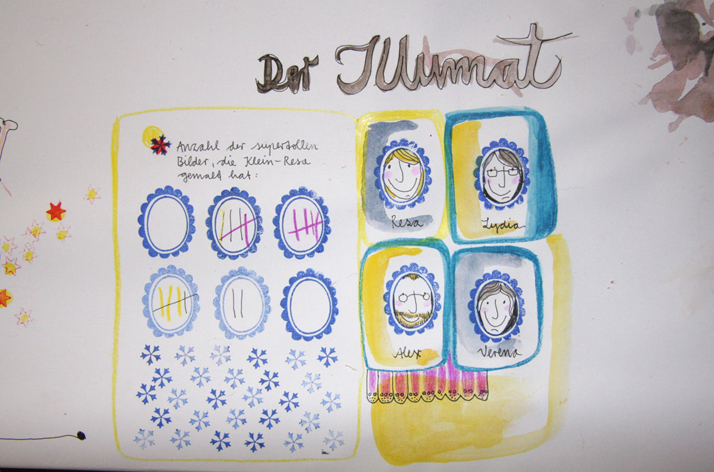 Der Illumat
Anzahl der supertollen
Bilder, die Klein-Resa
gemalt hat:
Resa
Lydia
Alex
Verena